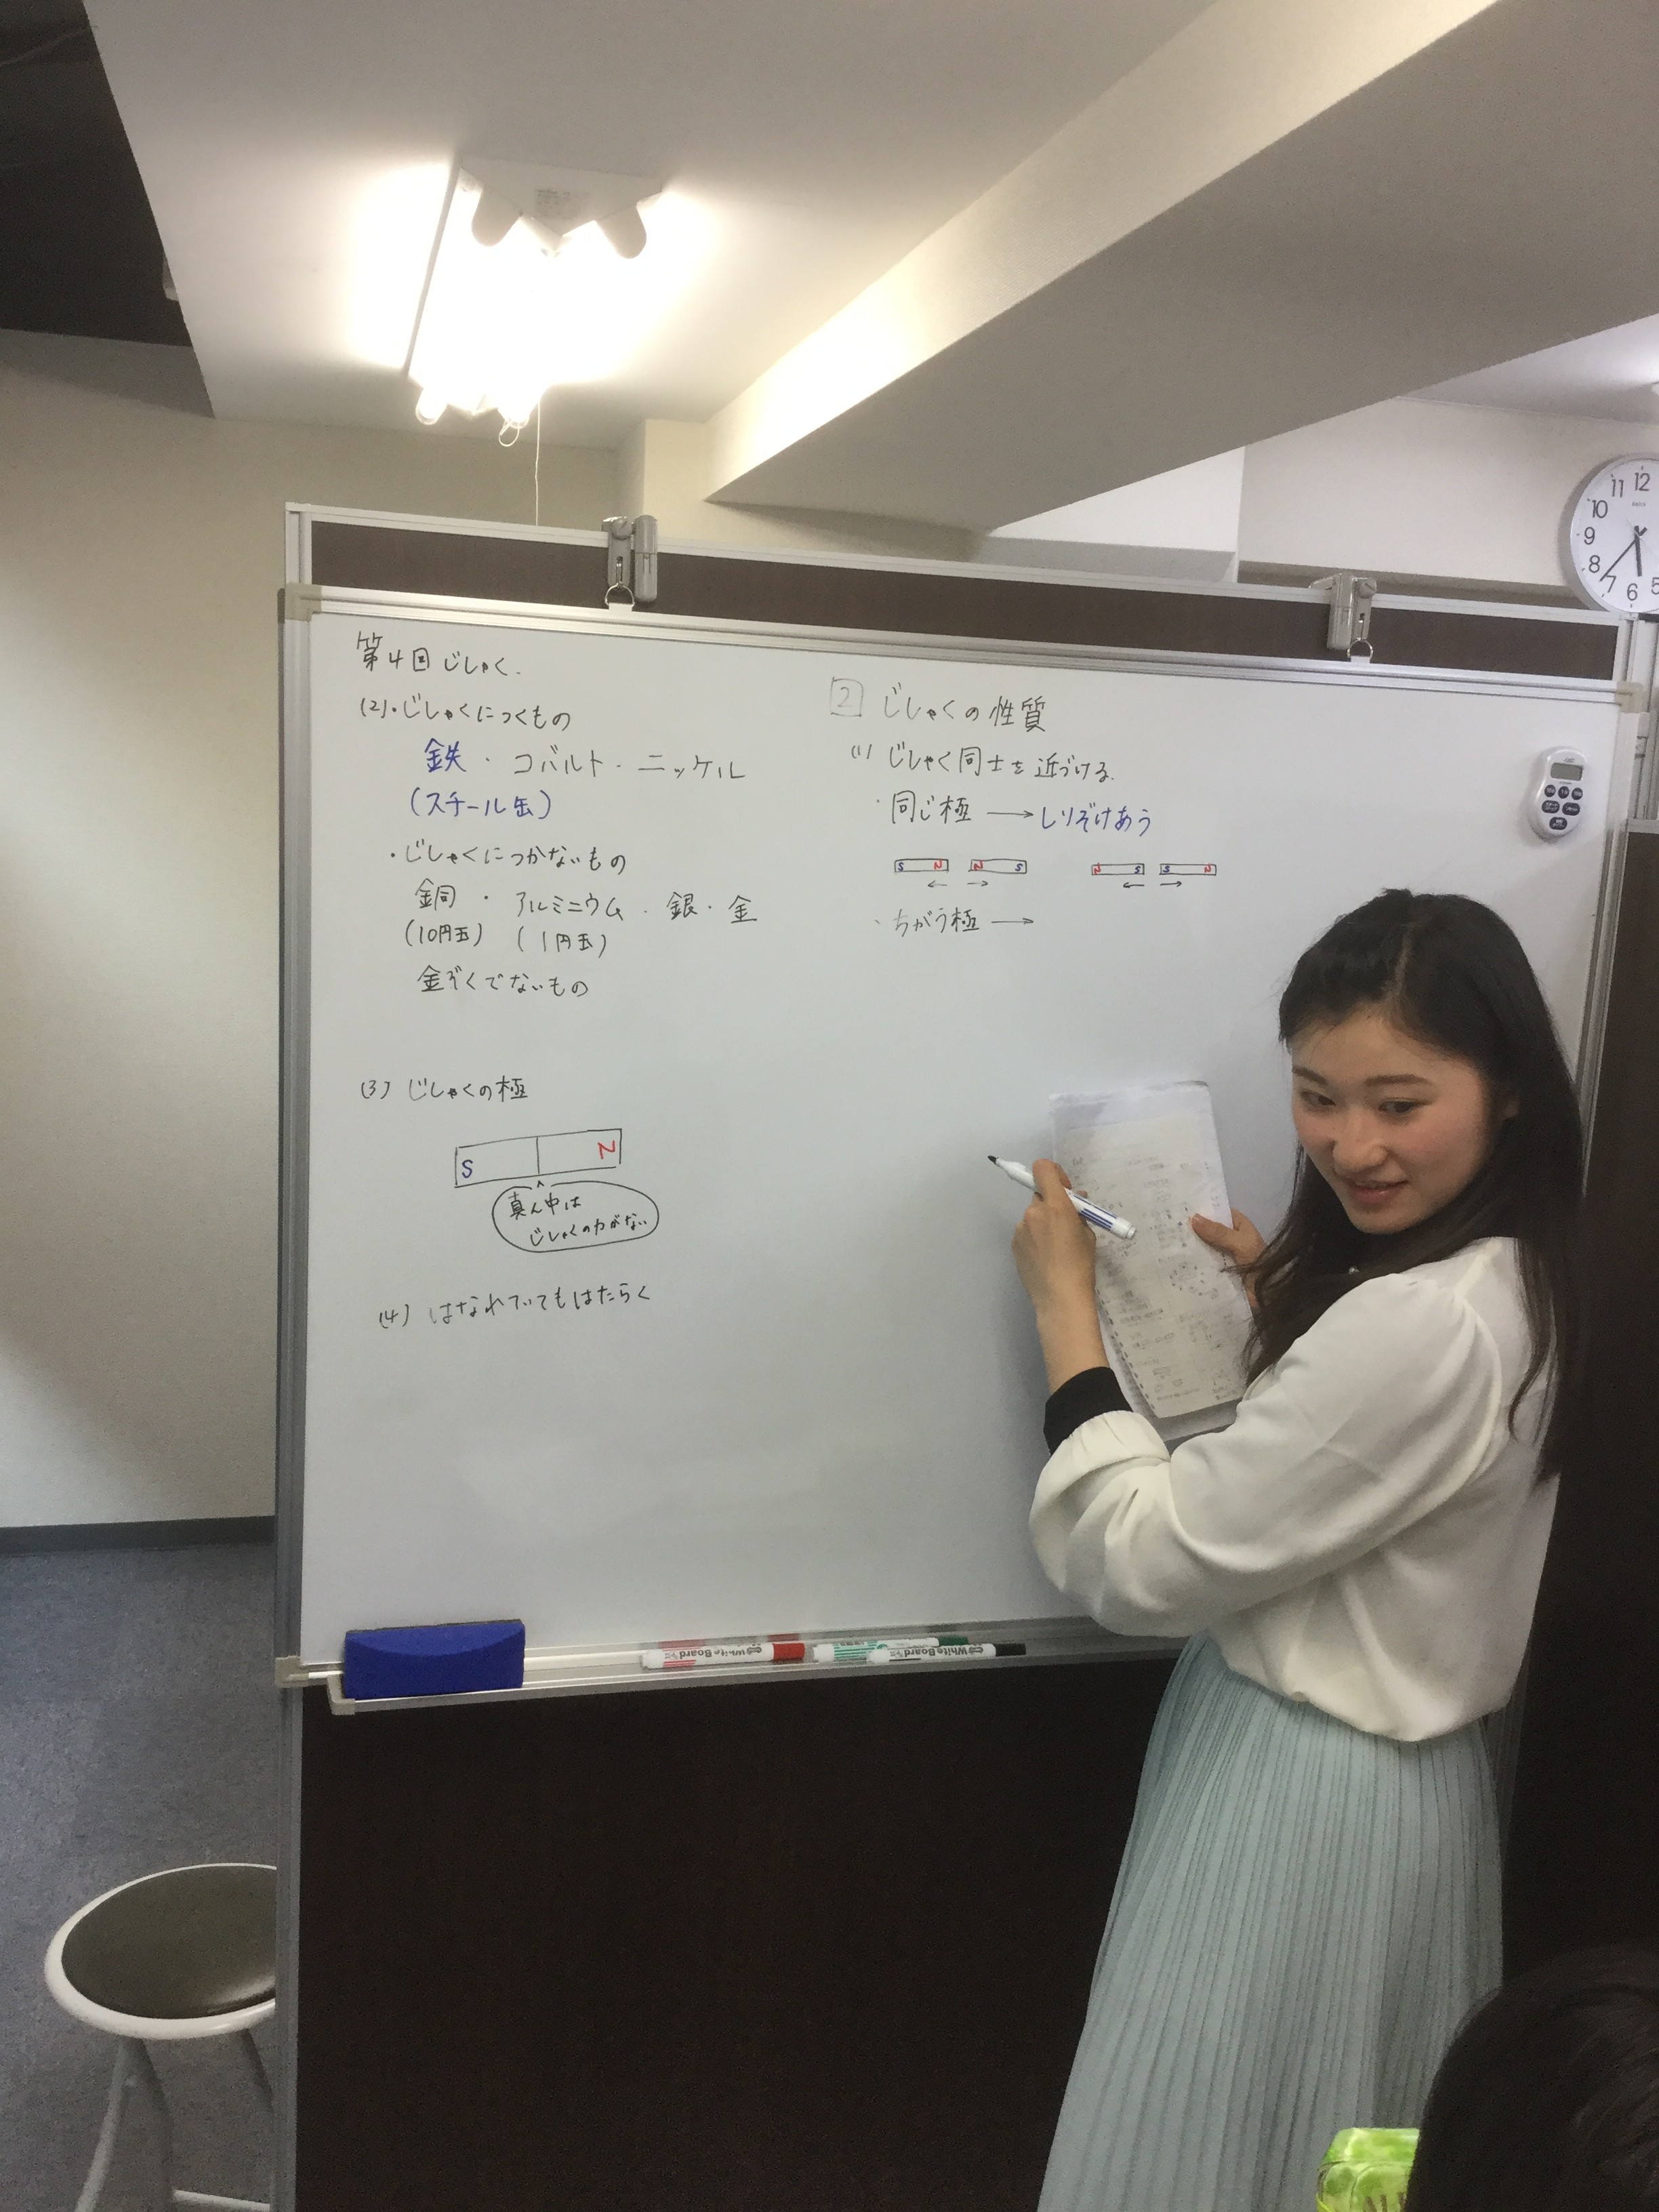 第4回 じしゃく.
(2)・じしゃくにつくもの
鉄・コバルト・ニッケル
(スチール缶)
・じしゃくにつかないもの
銅・アルミニウム・銀・金
(10円玉) (1円玉)
金ぞくでないもの
(3) じしゃくの極
S N
真ん中は
じしゃくの力がない
(4) はなれていてもはたらく
2 じしゃくの性質
(1) じしゃく同士を近づける.
・同じ極 → しりぞけあう
S N N S N S S N
← → ← →
・ちがう極 →
11 12
10
9
8
7 6 5
WhiteBoard
WhiteBoard